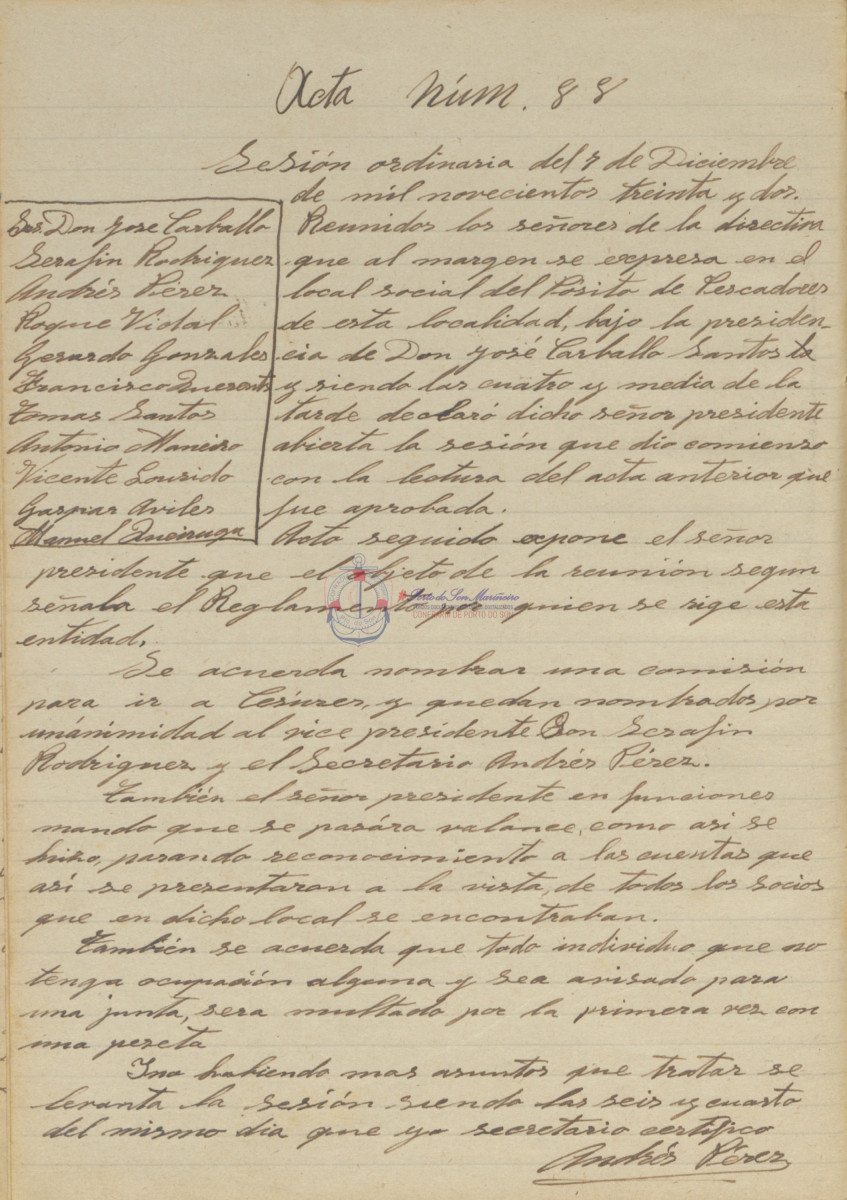 Acta Núm. 88
Sesión ordinaria del 7 de Diciembre
de mil novecientos treinta y dos.
Srs. Don José Carballo
Serafin Rodriguez
Andrés Pérez
Roque Vidal
Gerardo Gonzales
Francisco
Tomas Santos
Antonio Maneiro
Vicente Lourido
Gaspar Aviles
Manuel Queiruga
Reunidos los señores de la directiva
que al margen se expresa en el
local social del Pósito de Pescadores
de esta localidad, bajo la presiden-
cia de Don José Carballo Santos
y siendo las cuatro y media de la
tarde declaró dicho señor presidente
abierta la sesión que dio comienzo
con la lectura del acta anterior que
fue aprobada.
Acto seguido expone el señor
presidente que el objeto de la reunión segun
señala el Reglamento por quien se rige esta
entidad.
Se acuerda nombrar una comisión
para ir a Cesúres, y quedan nombrados por
unánimidad al vice presidente Don Serafin
Rodriguez y el Secretario Andrés Pérez.
También el señor presidente en funciones
mando que se pasára valance, como asi se
hizo, pasando reconocimiento a las cuentas que
así se presentaron a la vista, de todos los socios
que en dicho local se encontraban.
También se acuerda que todo individuo que no
tenga ocupación alguna y sea avisado para
una junta, sera multado por la primera vez con
una peseta
I no habiendo mas asuntos que tratar se
levanta la sesión siendo las seis y cuarto
del mismo dia que yo secretario certifico
Andrés Pérez
Porto do Son Mariñeiro
CONFRARÍA DE PORTO DO SON